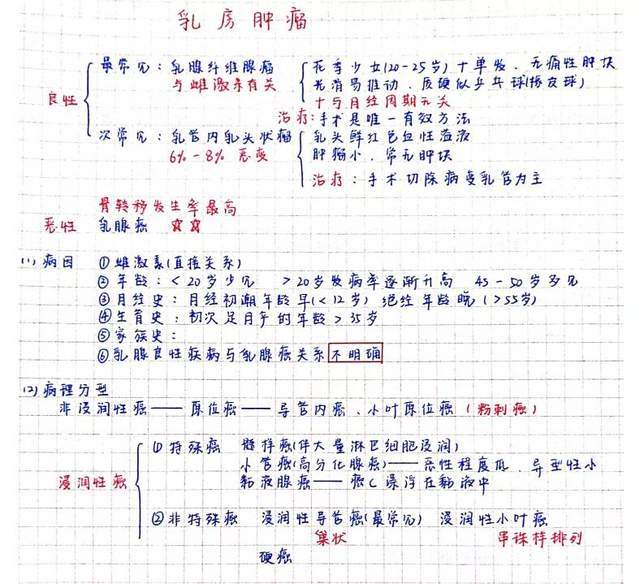 乳房肿瘤
良性
最常见：乳腺纤维腺瘤
与雌激素有关
花季少女(20-25岁)+单发、无痛性肿块
光滑易推动、质硬似乒乓球(橡皮球)
+与月经周期无关
治疗：手术是唯一有效方法
次常见：乳管内乳头状瘤
6%-8% 恶变
乳头鲜红色血性溢液
肿瘤小、常无肿块
治疗：手术切除病变乳管为主
骨转移发生率最高
恶性 乳腺癌 ☆☆
(1) 病因 ①雌激素(直接关系)
②年龄：<20岁少见 >20岁发病率逐渐升高 45-50岁多见
③月经史：月经初潮年龄早(<12岁) 绝经年龄晚(>55岁)
④生育史：初次足月产的年龄>35岁
⑤家族史：
⑥乳腺良性疾病与乳腺癌关系不明确
(2) 病理分型
非浸润性癌——原位癌——导管内癌、小叶原位癌(粉刺癌)
浸润性癌
①特殊癌 髓样癌(伴大量淋巴细胞浸润)
小管癌(高分化腺癌)——恶性程度低、异型性小
黏液腺癌——癌C漂浮在黏液中
②非特殊癌 浸润性导管癌(最常见) 浸润性小叶癌
巢状 串珠样排列
硬癌